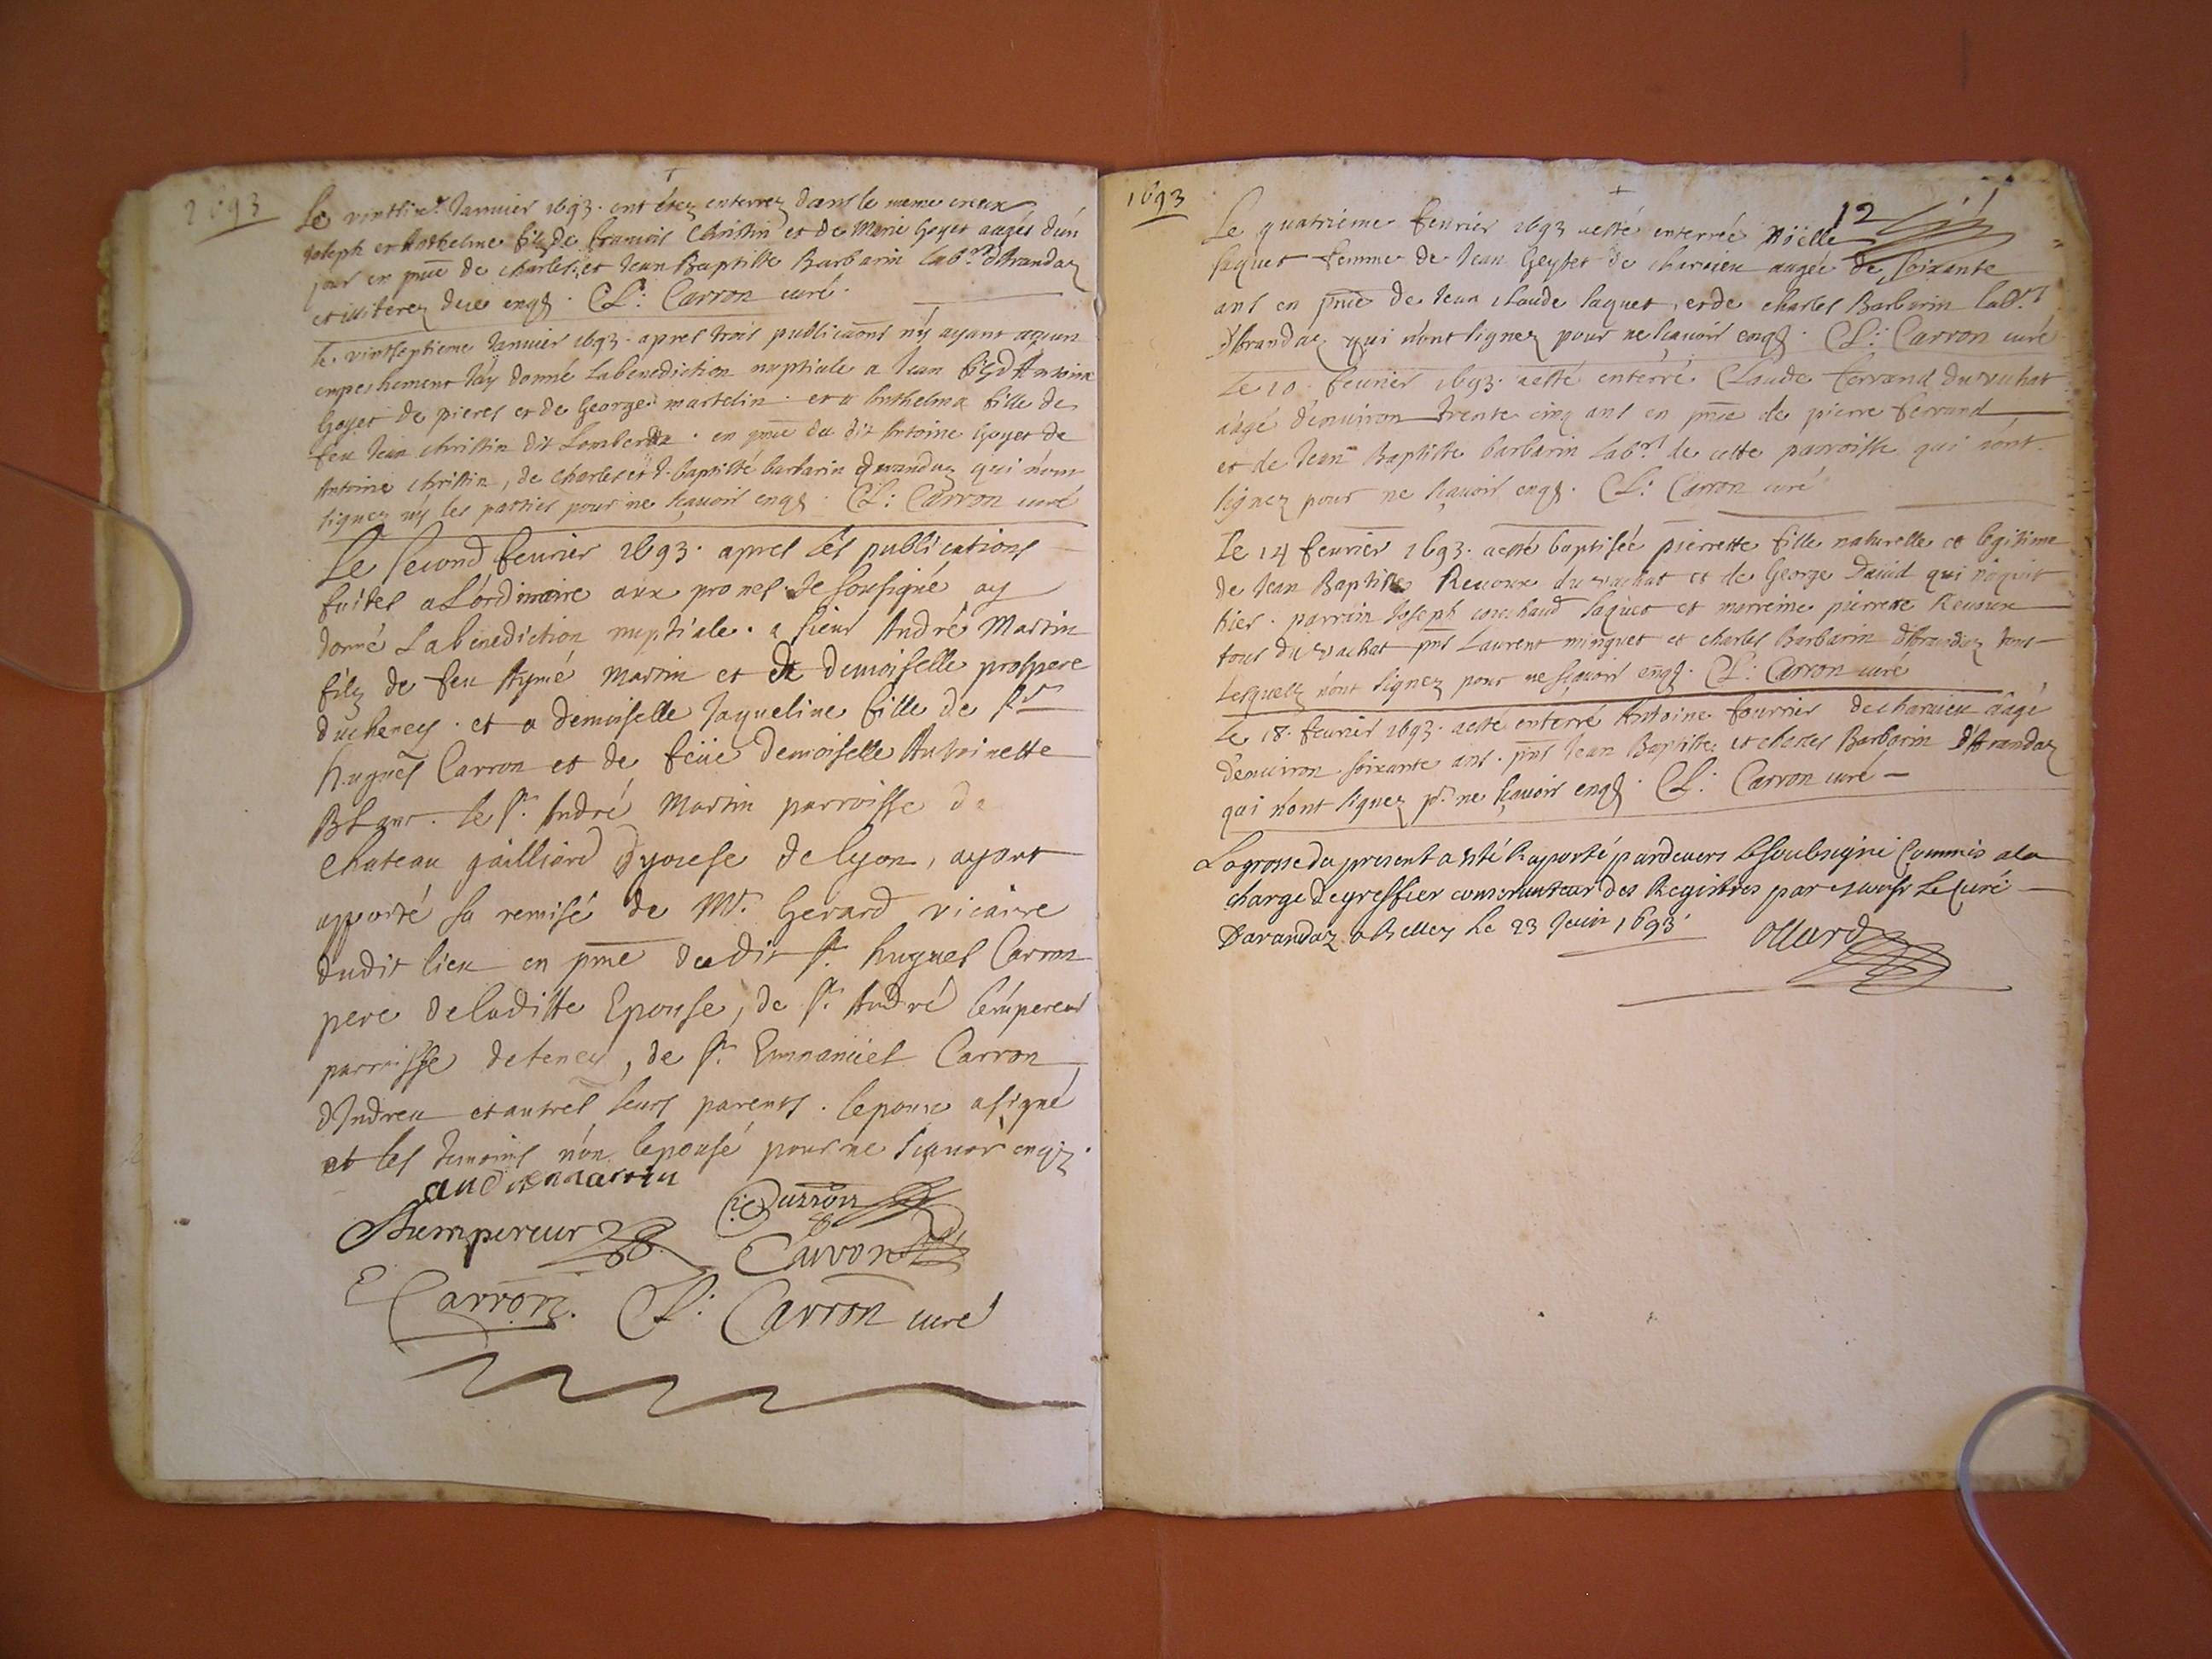 1693
Le vintsixe Janvier 1693. ont étez enterrez dans le meme creux
Joseph et Anthelme filz de francois Christin et de Marie Goyet aagés d'un
jour en pñce de charles et Jean Baptiste Barbarin labrs d'Arandaz
et illiterez de ce enqs. Cl: Carron curé.
Le vintseptieme Janvier 1693. apres trois publicaons n'y ayant aqun
empeshement J'ay donné la benediction nuptiale a Jean filz d'Antoine
Goyet de pieres et de George martelin. et a Anthelma fille de
feu Jean christin dit Lomberda. en pñce du dit Antoine Goyet de
Antoine christin, de charles et J. baptiste barbarin d'Arandaz qui n'ont
signez n'y les parties pour ne sçavoir enqs. Cl: Carron curé
Le second fevrier 1693. apres les publications
faites a L'ordinaire aux prones Je sousigné ay
donné La benediction nuptiale. a sieur André Martin
filz de feu Aymé Martin et de demoiselle prospere
ducheney. et a demoiselle Jaqueline fille de sr
hugues Carron et de feüe demoiselle Antoinette
BLanc. le sr. André Martin parroisse de
Chateau gailliard dyocese de lyon, ayant
apporté sa remise de Mr. Gerard vicaire
dudit lieu en pñce du dit sr. hugues Carron
pere de laditte Epouse, de sr. André Lempereur
parroisse de teney, de sr. Emmanüel Carron
d'Indreu et autres leurs parents. lepoux a signé
et les temoins non lepouse pour ne sçavoir enqs.
andre martin
Carron
ALempereur
Carron
E Carron. Cl: Carron curé
1693
12
Le quatrieme fevrier 1693 a esté enterrée Nöelle
Jaquet femme de Jean Geyset de charvieu aagée de soixante
ans en pñce de Jean claude Jaquet, et de charles Barbarin labrs
d'Arandaz qui n'ont signez pour ne sçavoir enqs. Cl: Carron curé
Le 10. fevrier 1693. a esté enterré Claude ferrand du vachat
aagé d'environ trente cinq ans en pñce de pierre ferrand
et de Jean Baptiste barbarin labrs de cette parroisse qui n'ont
signez pour ne sçavoir enqs. Cl: Carron curé
Le 14 fevrier 1693. a esté baptisée pierrette fille naturelle et legitime
de Jean Baptiste Revoux du vachat et de George David qui naquit
hier. parrain Joseph couchaud Jaquet et marreine pierrette Revoux
tous du vachat pñs Laurent minguet et charles Barbarin d'Arandaz tous
Lesquelz n'ont signez pour ne sçavoir enqs. Cl: Carron curé
Le 18. fevrier 1693. a esté enterré Antoine fourrier de charvieu aagé
d'environ soixante ans. pñs Jean Baptiste et charles Barbarin d'Arandaz
qui n'ont signez pr. ne sçavoir enqs. Cl: Carron curé
La grosse du present a esté Raporté pardevers le soubsigné Commis a la
charge de greffier conservateur des Registres par le curé
Darandaz a Belley Le 23 Juin 1693